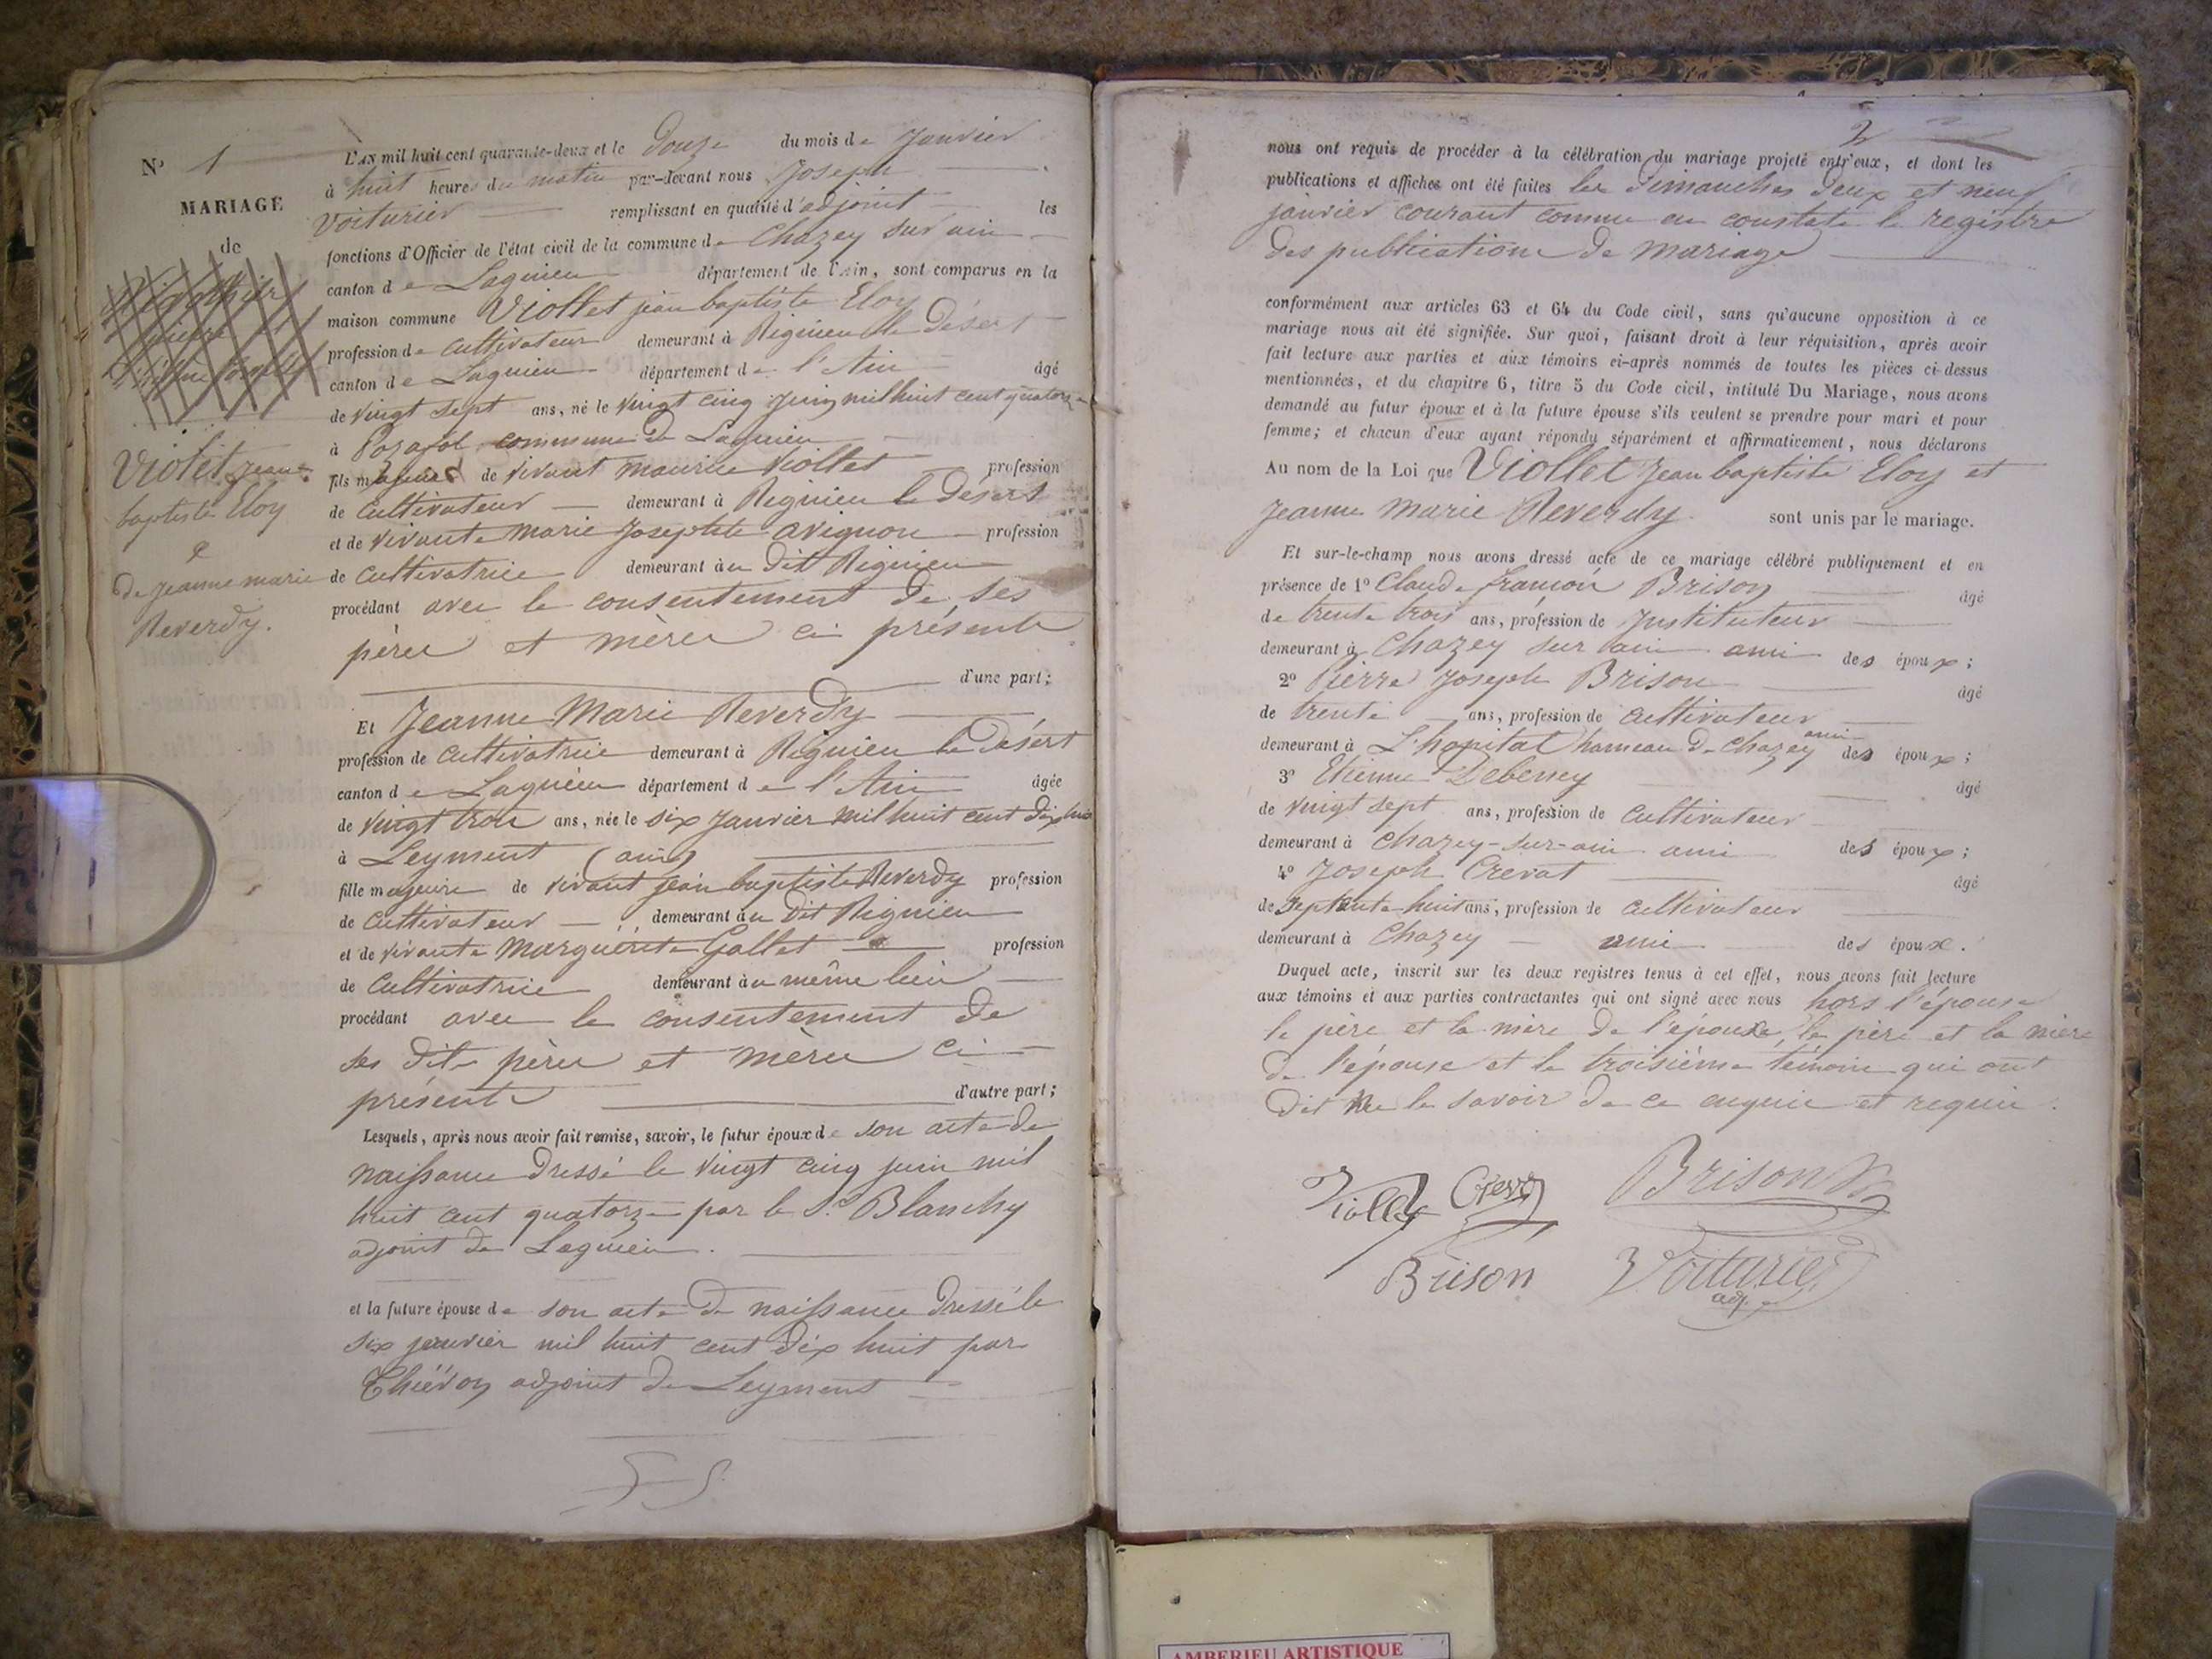 N° 1
MARIAGE
de
Violet Jean
baptiste Eloy
&
De jeanne marie
Reverdy.
L'AN mil huit cent quarante-deux et le Douze du mois de Janvier
à huit heures du matin par-devant nous Joseph
Voiturier remplissant en qualité d'adjoint les
fonctions d'Officier de l'état civil de la commune de Chazey sur ain
canton de Lagnieu département de l'Ain, sont comparus en la
maison commune Viollet jean baptiste Eloy
profession de Cultivateur demeurant à Rignieu le Désert
canton de Lagnieu département de l'Ain âgé
de vingt sept ans, né le vingt cinq juin mil huit cent quatorze
à Posafol commune de Lagnieu
fils majeur de vivant maurice Viollet profession
de Cultivateur demeurant à Rignieu le Désert
et de vivante Marie Josephte avignon profession
de Cultivatrice demeurant au dit Rignieu
procédant avec le consentement de ses
pères et mères ci présents
d'une part;
Et Jeanne Marie Reverdy
profession de cultivatrice demeurant à Rignieu le Désert
canton de Lagnieu département de l'Ain âgée
de vingt trois ans, née le six Janvier mil huit cent dix huit
à Leyment (ain)
fille majeure de vivant jean baptiste Reverdy profession
de Cultivateur demeurant au dit Rignieu
et de vivante Marguerite Gallet profession
de Cultivatrice demeurant au même lieu
procédant avec le consentement de
ses dits pères et mères ci
présents d'autre part;
Lesquels, après nous avoir fait remise, savoir, le futur époux de son acte de
naissance dressé le vingt cinq juin mil
huit cent quatorze par le Sr Blanchy
adjoint de Lagnieu.
et la future épouse de son acte de naissance dressé le
six janvier mil huit cent dix huit par
Chiévoz adjoint de Leyment
2
nous ont requis de procéder à la célébration du mariage projeté entr'eux, et dont les
publications et affiches ont été faites les Dimanches deux et neuf
janvier courant comme en constate le registre
des publications de mariage
conformément aux articles 63 et 64 du Code civil, sans qu'aucune opposition à ce
mariage nous ait été signifiée. Sur quoi, faisant droit à leur réquisition, après avoir
fait lecture aux parties et aux témoins ci-après nommés de toutes les pièces ci-dessus
mentionnées, et du chapitre 6, titre 5 du Code civil, intitulé Du Mariage, nous avons
demandé au futur époux et à la future épouse s'ils veulent se prendre pour mari et pour
femme; et chacun d'eux ayant répondu séparément et affirmativement, nous déclarons
Au nom de la Loi que Viollet Jean baptiste Eloy et
Jeanne Marie Reverdy sont unis par le mariage.
Et sur-le-champ nous avons dressé acte de ce mariage célébré publiquement et en
présence de 1° Claude françois Brison âgé
de trente trois ans, profession de Instituteur
demeurant à Chazey sur ain ami des époux;
2° Pierre Joseph Brison âgé
de trente ans, profession de Cultivateur
demeurant à L'hopital hameau de Chazey ami des époux;
3° Etienne Debeney âgé
de vingt sept ans, profession de Cultivateur
demeurant à Chazey-sur-ain ami des époux;
4° Joseph Crevat âgé
de Septante huit ans, profession de Cultivateur
demeurant à Chazey ami des époux.
Duquel acte, inscrit sur les deux registres tenus à cet effet, nous avons fait lecture
aux témoins et aux parties contractantes qui ont signé avec nous hors l'épouse
le père et la mère de l'époux, le père et la mère
de l'épouse et le troisième témoin qui ont
dit ne le savoir de ce enquis et requis.
Brison
Brison Voiturier
adj.
AMBERIEU ARTISTIQUE